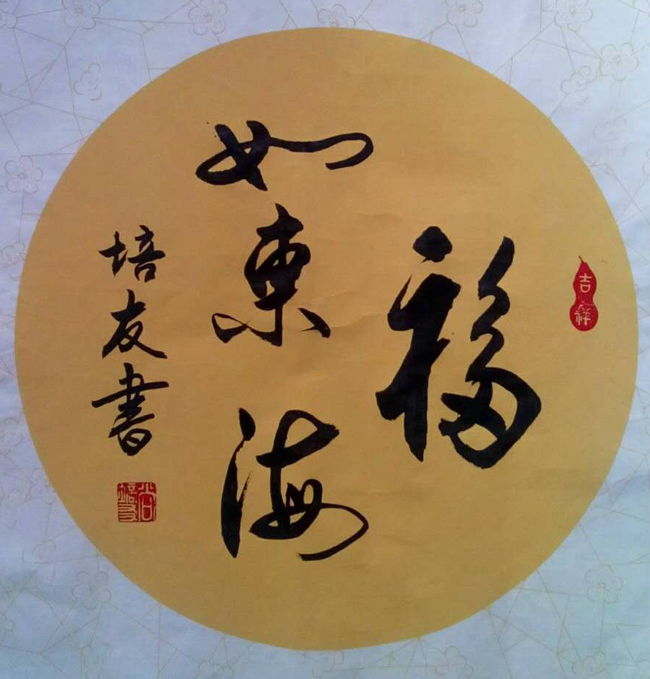 吉祥
福
如東海
培友書